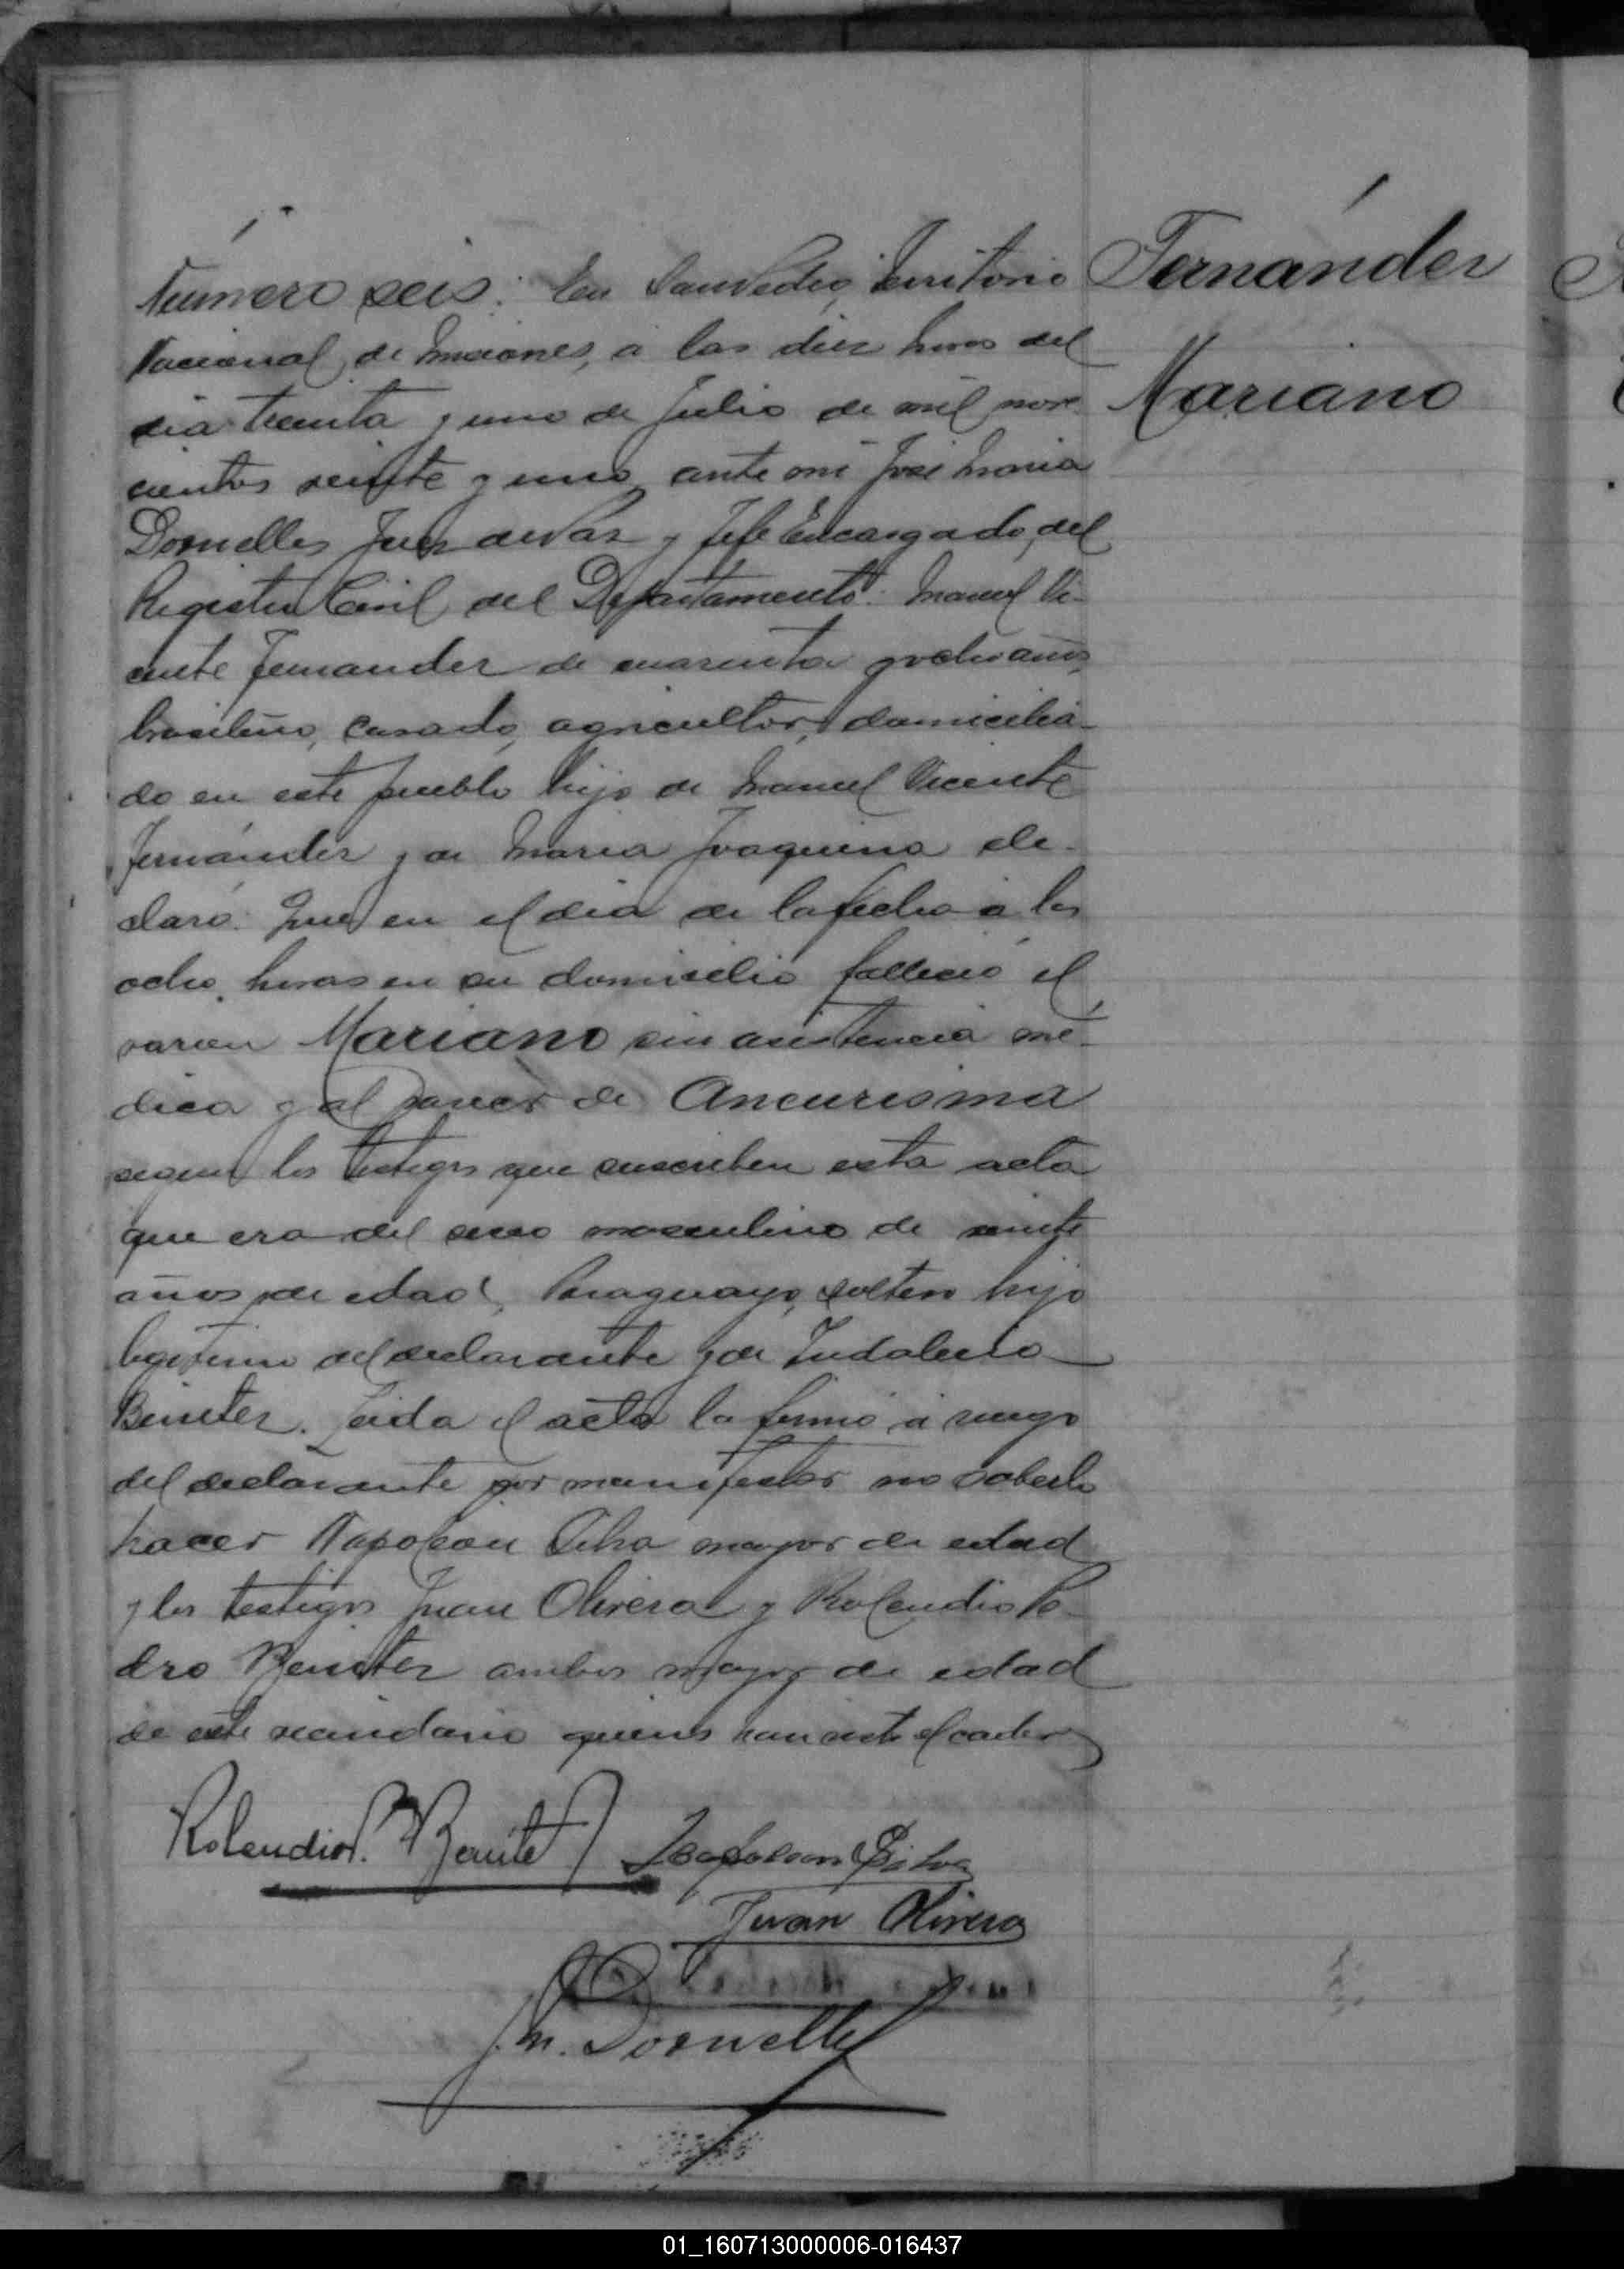 Número seis: En San Pedro, Territorio
Nacional de Misiones, á las diez horas del
dia treinta y uno de Julio de mil nove
cientos veinte y uno, ante mi José Maria
Dornelles Juez de Paz y Jefe Encargado del
Registro Civil del Departamento: Manuel Vi-
cente Fernandez de cuarenta y ocho años,
brasilero, casado, agricultor, domicilia-
do en este pueblo hijo de Manuel Vicente
Fernández y de Maria Joaquina de-
claró: Que en el dia de la fecha á las
ocho horas en su domicilio falleció el
varon Mariano sin asistencia mé-
dica y al parecer de Aneurisma
segun los testigos que suscriben esta acta
que era del sexo masculino de veinte
años de edad, Paraguayo, soltero hijo
legitimo del declarante y de Indalecia
Benitez. Leida el acta la firmó á ruego
del declarante por manifestar no saberlo
hacer Napoleon Silva mayor de edad
y los testigos Juan Olivera y Rolendio Pe-
dro Benitez ambos mayor de edad
de este vecindario quienes han visto el cadaver
Fernández
Mariano
Rolendio P. Benitez Napoleon Silva
Juan Olivera
J. M. Dornelles
01_160713000006-016437